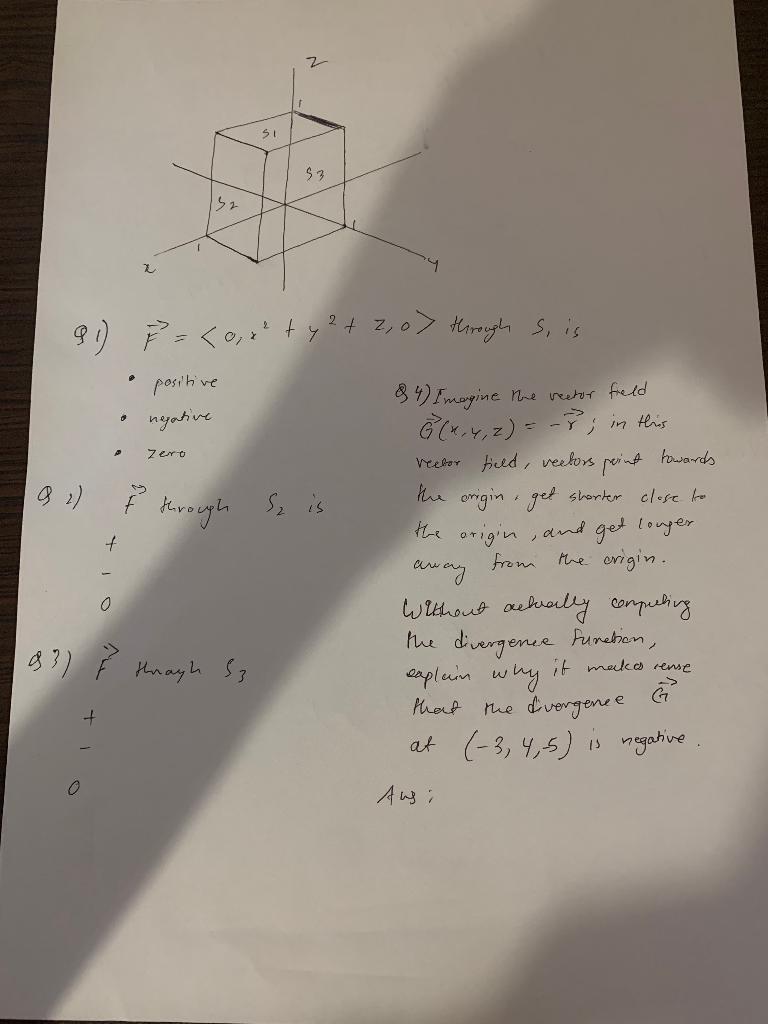 z
1
S1
S3
S2
1
1
x
y
Q 1) F = < 0, x² + y² + z, 0 > through S, is
• positive
• negative
• zero
Q 2) F through S2 is
+
-
0
Q 3) F through S3
+
-
0
Q 4) Imagine the vector field
G(x, y, z) = - r ; in this
vector field, vectors point towards
the origin, get shorter close to
the origin, and get longer
away from the origin.
Without actually computing
the divergence function,
explain why it makes sense
that the divergence G
at (-3, 4, 5) is negative.
Ans ;